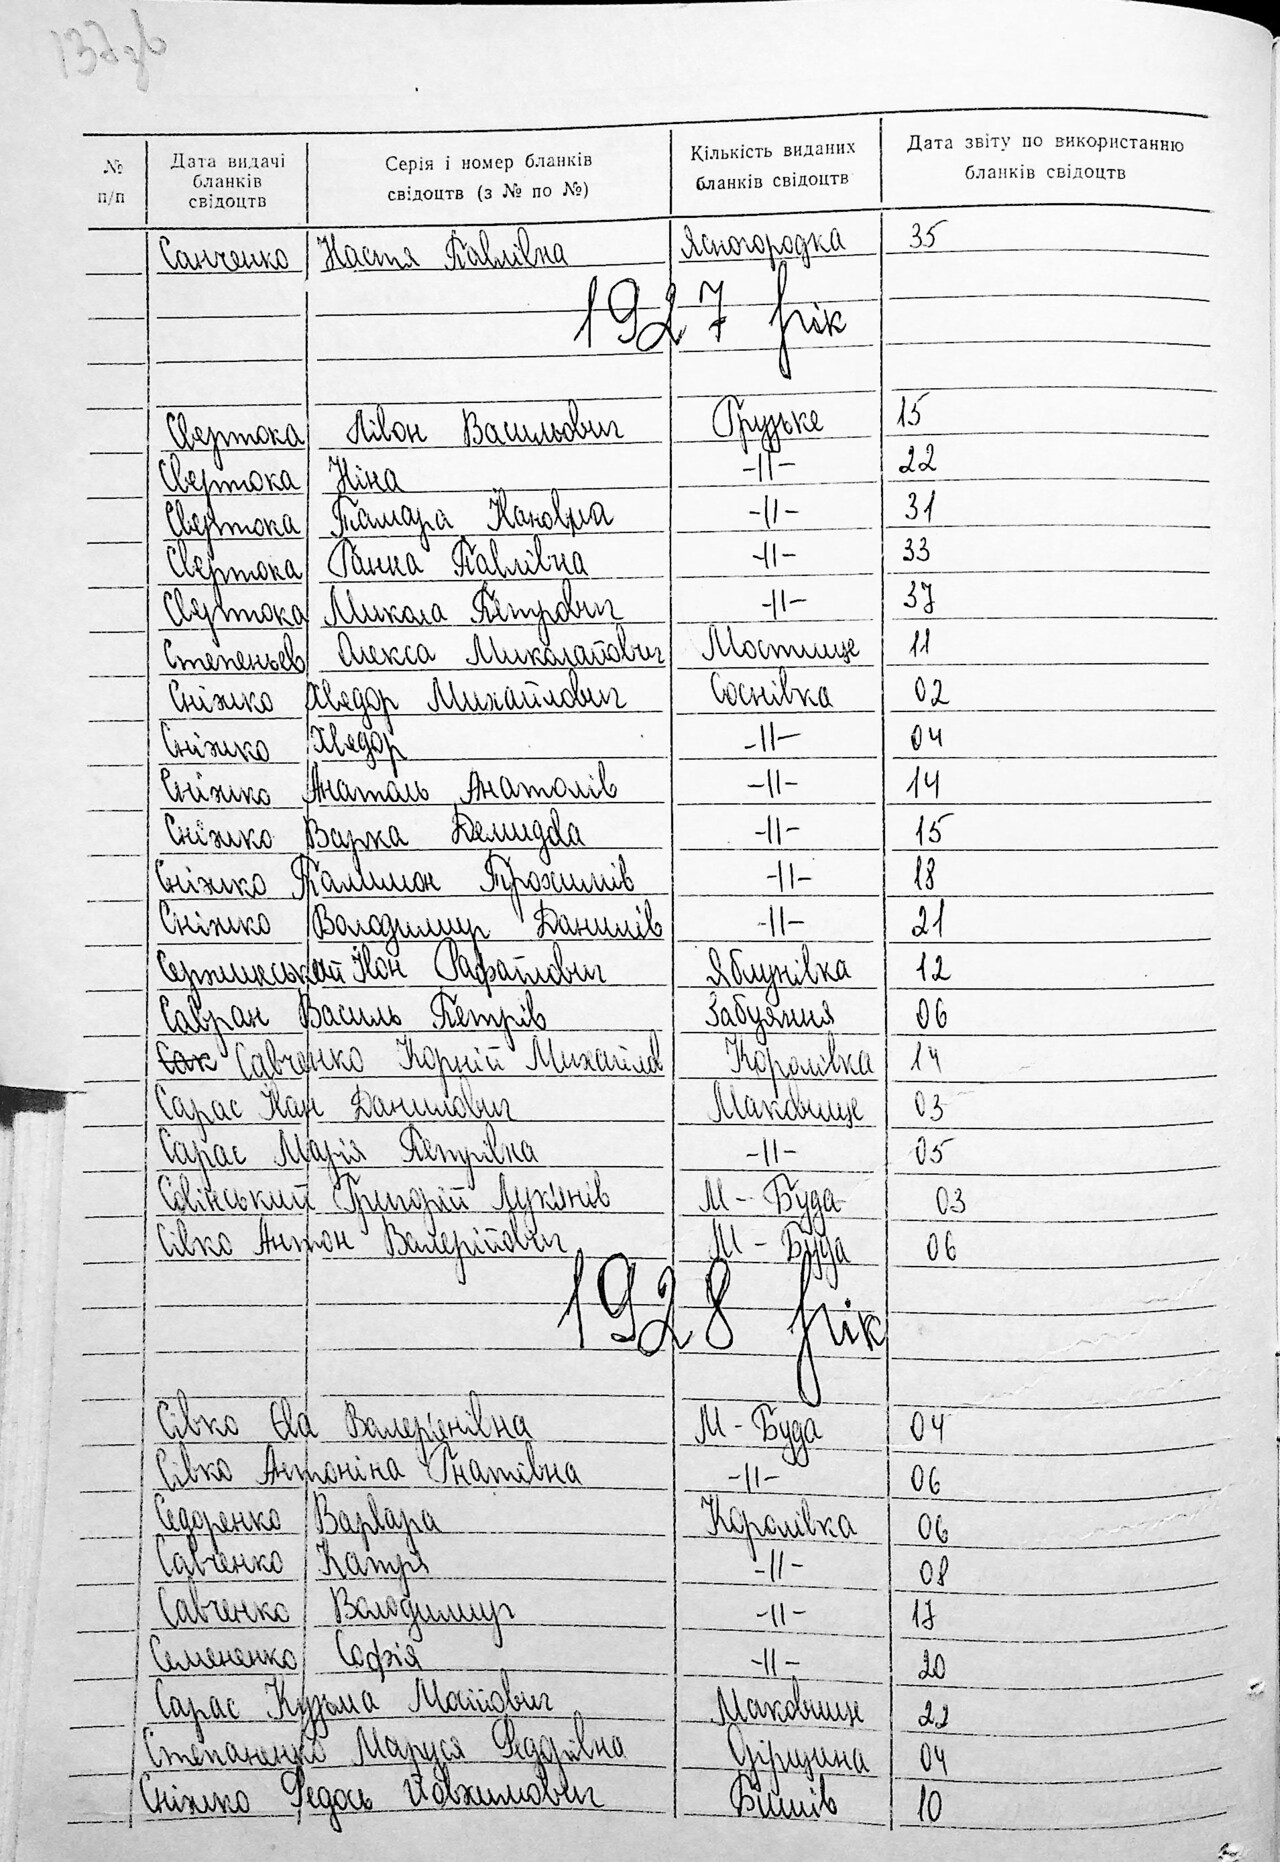 137зв
№ п/п Дата видачі бланків свідоцтв Серія і номер бланків свідоцтв (з № по №) Кількість виданих бланків свідоцтв Дата звіту по використанню бланків свідоцтв
Санченко Настя Павлівна Ясногородка 35
1927 рік
Свертока Лівон Васильович Грузьке 15
Свертока Ніна -//- 22
Свертока Тамара -//- 31
Свертока Ганка Павлівна -//- 33
Свертока Микола Петрович -//- 37
Степеньев Олекса Миколайович Мостище 11
Сніжко Хведор Михайлович Соснівка 02
Сніжко Хведор -//- 04
Сніжко Анатоль Анатолів -//- 14
Сніжко Варка Демидова -//- 15
Сніжко Палимон Трохимів -//- 18
Сніжко Володимир Данилів -//- 21
Іван Рафайлович Яблунівка 12
Савран Василь Петрів Забуяння 06
Сак Савченко Корній Михайлов Королівка 14
Сарас Іван Данилович Маковище 03
Сарас Марія Петрівна -//- 05
Совінський Григорій Лук'янів М-Буда 03
Сівко Антон Валерійович М-Буда 06
1928 рік
Сівко Єва Валер'енівна М-Буда 04
Сівко Антоніна Гнатівна -//- 06
Седоренко Варвара Королівка 06
Савченко Катря -//- 08
Савченко Володимир -//- 17
Семененко Софія -//- 20
Сарас Кузьма Маковище 22
Степаненко Маруся Федорівна 04
Сніжко Федось Йовхимович Бишів 10